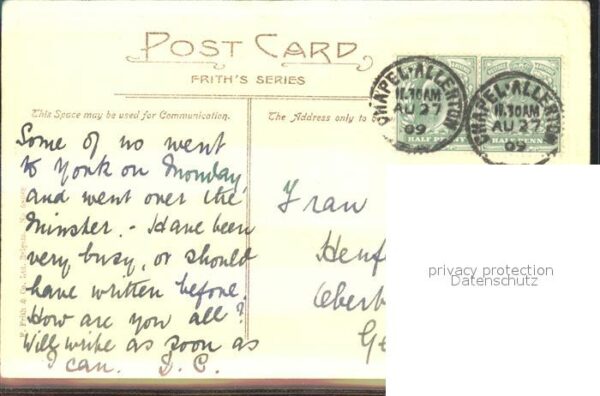 POST CARD
FRITH'S SERIES
This Space may be used for Communication.
The Address only to
CHAPEL-ALLERTON
11.30AM
AU 27
09
HALF PE
CHAPEL-ALLERTON
11.30AM
AU 27
09
HALF PENN
Some of us went
to York on Monday,
and went over the
Minster. - Have been
very busy, or should
have written before.
How are you all?
Will write as soon as
I can. D. C.
Frau
Oberb
Ge
F. Frith & Co. Ltd., Reigate.
privacy protection
Datenschutz